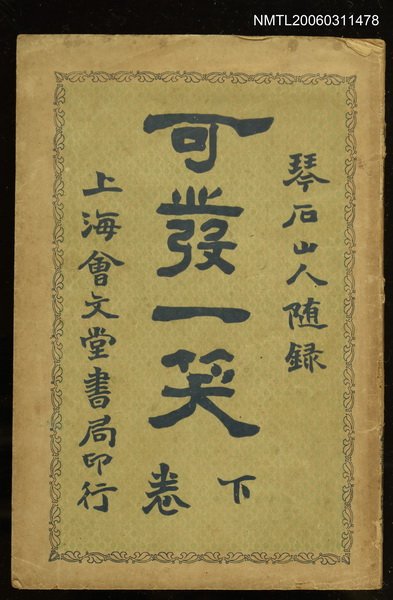 NMTL20060311478
琴石山人随録
可發一笑
下卷
上海會文堂書局印行